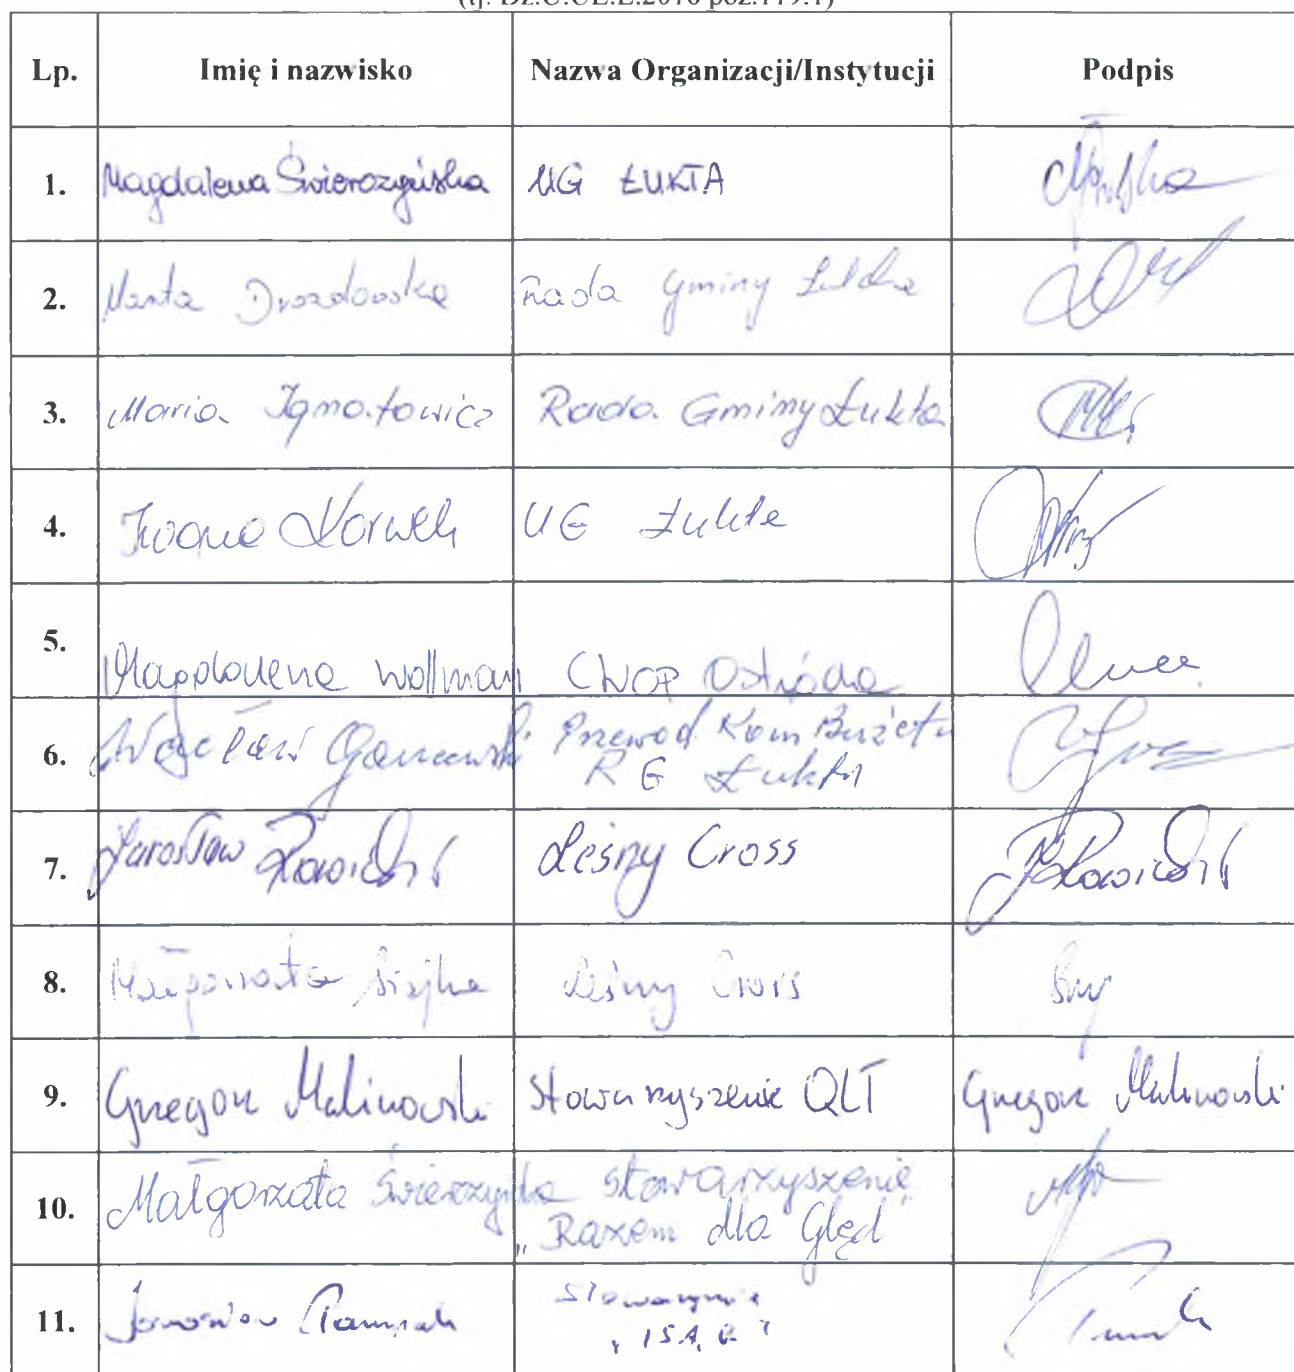 (tj. Dz.U.UE.L.2016 poz.119.1)
Lp. Imię i nazwisko Nazwa Organizacji/Instytucji Podpis
1. Magdalena Świerczyńska UG ŁUKTA
2. Marta Drozdowska Rada Gminy Łukta
3. Maria Ignatowicz Rada Gminy Łukta
4. Iwona UG Łukta
5. Magdalena Wollman CWOP Ostróda
6. Wacław Przewod Kom Budżetu
RG Łukta
7. Jarosław Leśny Cross
8. Małgorzata Leśny Cross
9. Grzegorz Malinowski Stowarzyszenie QLT Grzegorz Malinowski
10. Małgorzata Świerczyńska Stowarzyszenie
„Razem dla Ględ"
11.